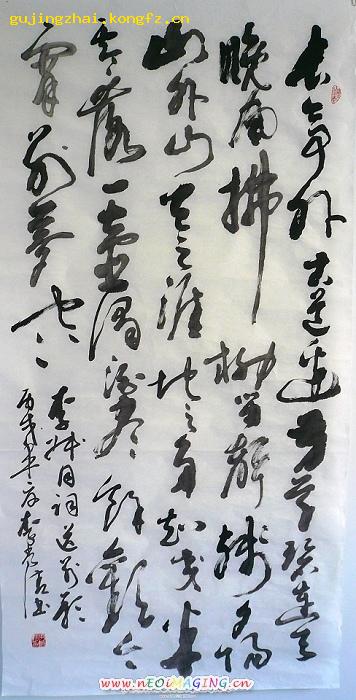 gujingzhai.kongfz.cn
長亭外古道邊芳草碧連天
晚風拂柳笛聲殘夕陽
山外山天之涯地之角知交半
零落一壺濁酒盡餘歡今
宵别夢寒
李叔同詞送别歌
丙戌年 書
www.nEOiMAGING.cn